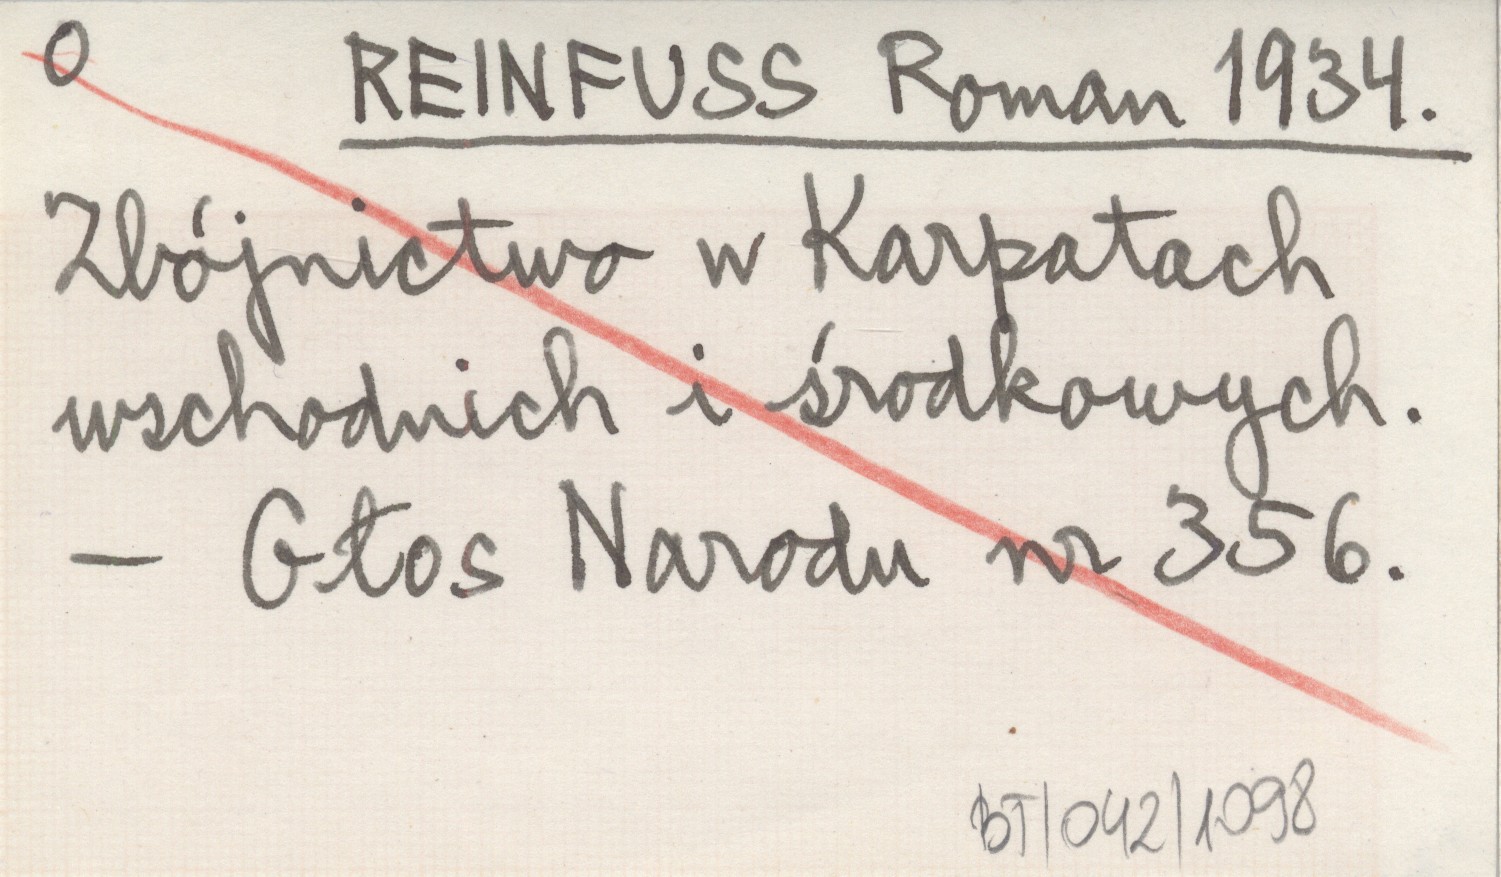 0 REINFUSS Roman 1934.
Zbójnictwo w Karpatach
wschodnich i środkowych.
— Głos Narodu nr 356.
BT/042/1098